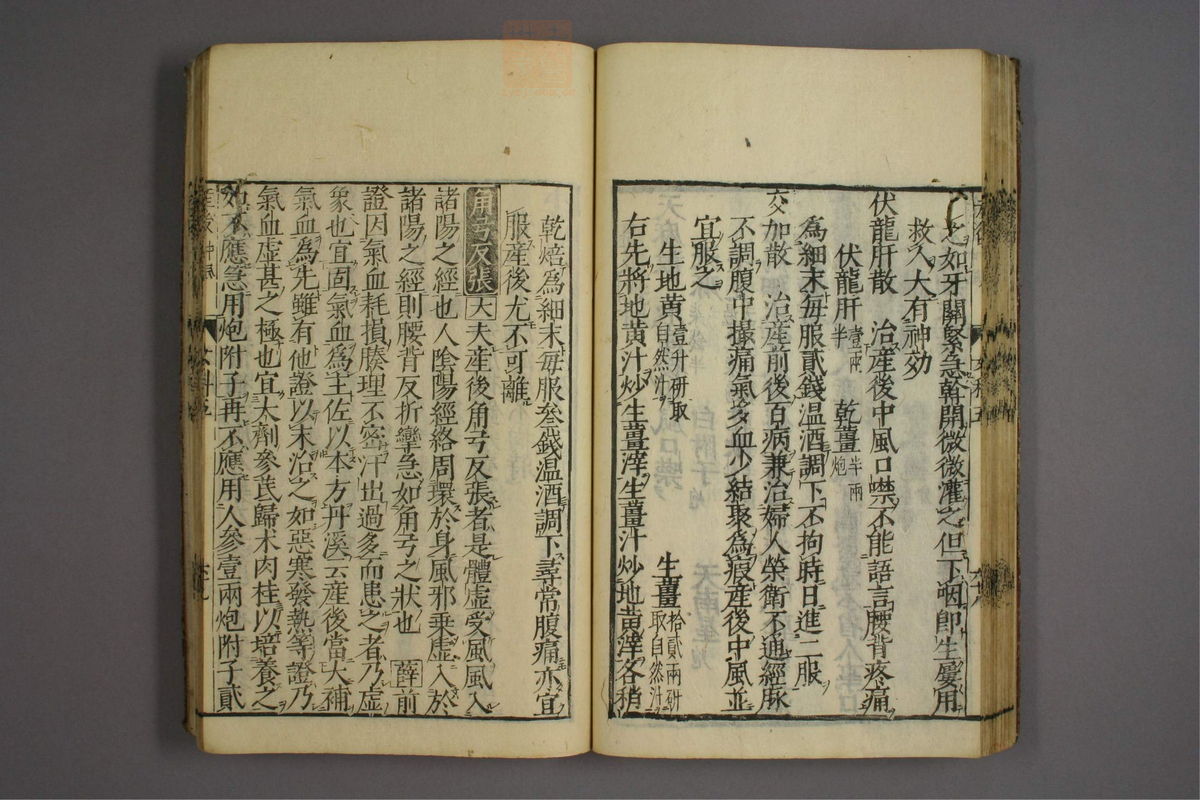 之如牙關緊急幹開微微灌之但下咽即生屡用
救人大有神効
伏龍肝散　治産後中風口噤不能語言腰背疼痛
伏龍肝壹兩半　乾薑半兩炮
爲細末毎服貳錢温酒調下不拘時日進二服
交加散　治産前後百病兼治婦人榮衛不通經脉
不調腹中撮痛氣多血少結聚爲瘕産後中風並
宜服之
生地黄壹升研取自然汁　生薑拾貳兩研取自然汁
右先將地黄汁炒生薑滓生薑汁炒地黄滓各稍
乾焙爲細末毎服叁錢温酒調下尋常腹痛亦宜
服産後尤不可離
角弓反張　大　夫産後角弓反張者是體虚受風風入
諸陽之經也人陰陽經絡周環於身風邪乗虚入於
諸陽之經則腰背反折攣急如角弓之狀也　薛　前
證因氣血耗損腠理不密汗出過多而患之者乃虚
象也宜固氣血爲主佐以本方丹溪云産後當大補
氣血爲先雖有他證以末治之如惡寒發熱等證乃
氣血虚甚之極也宜大劑參芪歸术肉桂以培養之
如不應急用炮附子再不應用人參壹兩炮附子貳